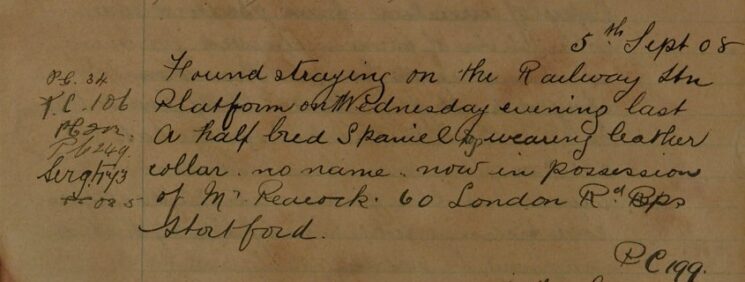 5th Sept 08
P.C. 34
Found straying on the Railway Stn
P.C. 106
Platform on Wednesday evening last
A half bred Spaniel dog wearing leather
P.C 249.
collar. no name. now in possession
Sergt
of Mr Peacock. 60 London Rd Bps
Stortford.
P C 199.